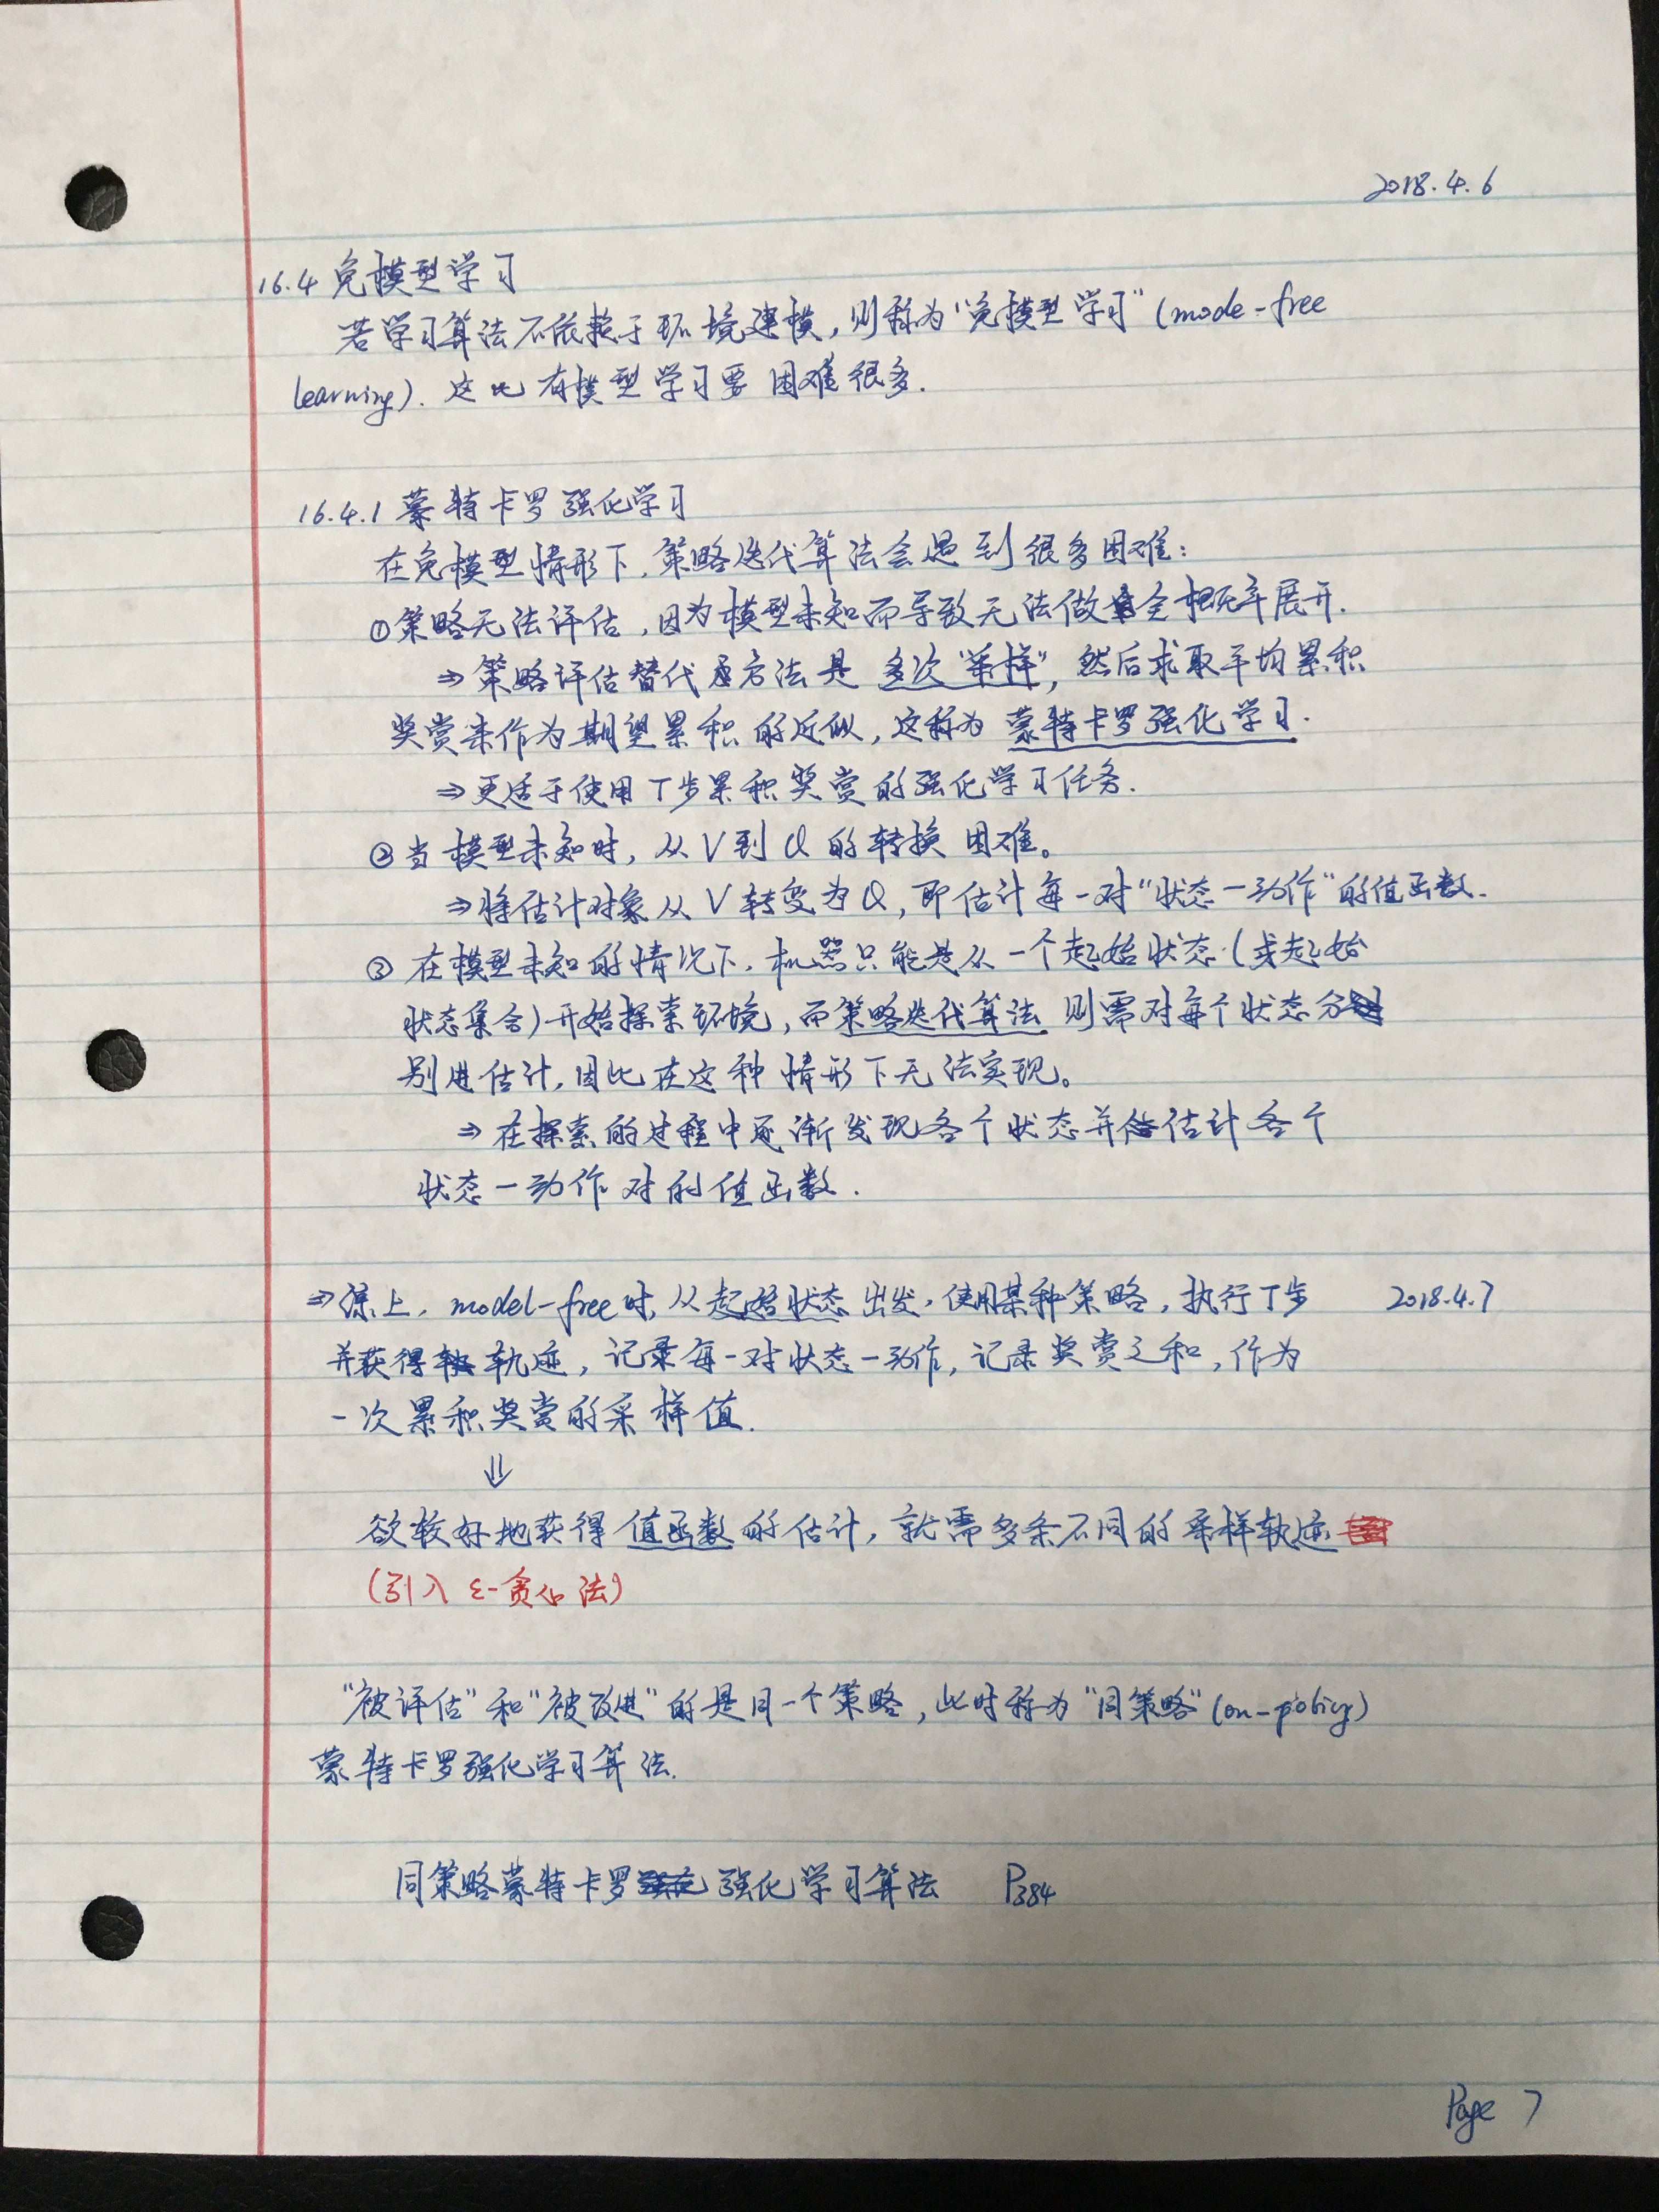 2018.4.6
16.4 免模型学习
若学习算法不依赖于环境建模,则称为"免模型学习"(mode-free
learning). 这比有模型学习要困难很多.
16.4.1 蒙特卡罗强化学习
在免模型情形下,策略迭代算法会遇到很多困难:
①策略无法评估,因为模型未知而导致无法做全概率展开.
⇒ 策略评估替代方法是多次"采样",然后求取平均累积
奖赏来作为期望累积的近似,这称为蒙特卡罗强化学习.
⇒更适于使用T步累积奖赏的强化学习任务.
②当模型未知时,从V到Q的转换困难。
⇒将估计对象从V转变为Q,即估计每一对"状态-动作"的值函数.
③ 在模型未知的情况下,机器只能是从一个起始状态(或起始
状态集合)开始探索环境,而策略迭代算法则需对每个状态分
别进估计,因此在这种情形下无法实现。
⇒在探索的过程中逐渐发现各个状态并估计各个
状态-动作对的值函数.
⇒综上,model-free时,从起始状态出发,使用某种策略,执行T步 2018.4.7
并获得轨迹,记录每一对状态-动作,记录奖赏之和,作为
一次累积奖赏的采样值.
⇓
欲较好地获得值函数的估计,就需多条不同的采样轨迹
(引入 ε-贪心法)
"被评估"和"被改进"的是同一个策略,此时称为"同策略"(on-policy)
蒙特卡罗强化学习算法.
同策略蒙特卡罗强化学习算法 P384
Page 7